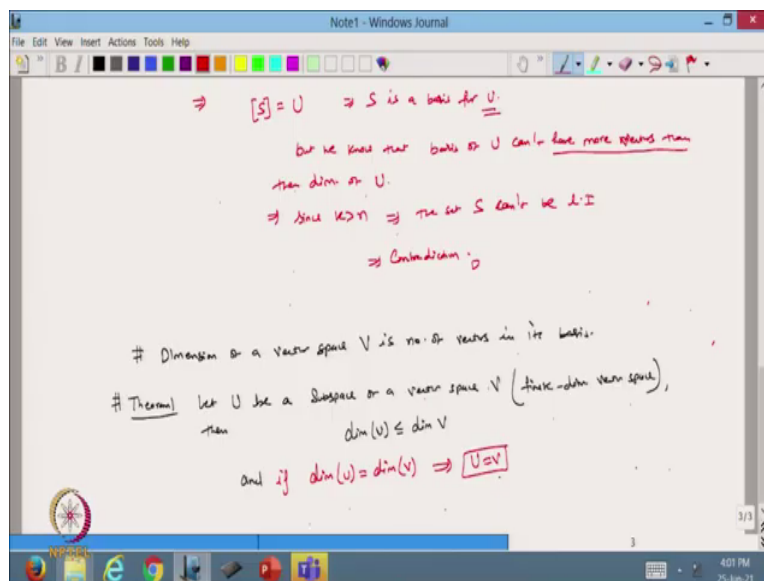 Note1 - Windows Journal
File Edit View Insert Actions Tools Help
B I
⇒ [S] = U ⇒ S is a basis for U.
but we know that basis of U can't have more vectors than
then dim. of U.
⇒ since k>n ⇒ The set S can't be L.I
⇒ Contradiction.
# Dimension of a vector space V is no. of vectors in its basis.
# Theorem1 Let U be a Subspace of a vector space V (finite-dim vector space),
then dim(U) ≤ dim V
and if dim(U) = dim(V) ⇒ U=V
NPTEL
3/3
3
4:01 PM
25-Jun-21